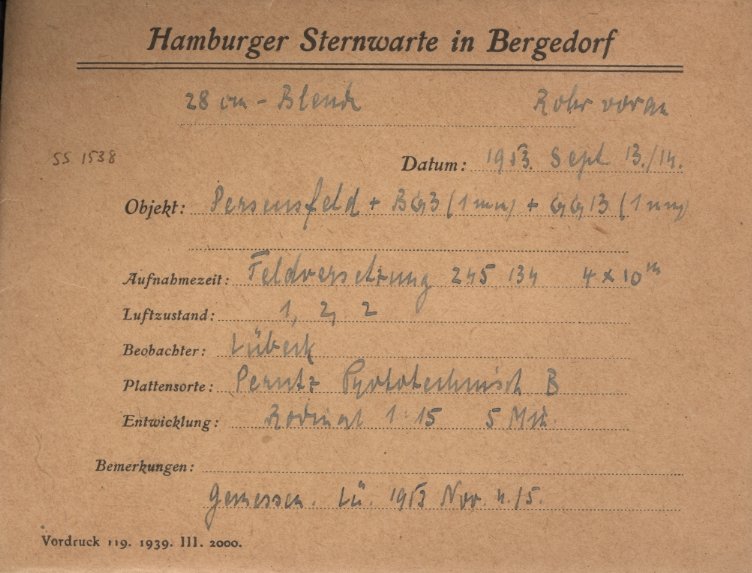 Hamburger Sternwarte in Bergedorf
28 cm - Blende Rohr voran
SS 1538
Datum: 1953. Sept 13./14.
Objekt: Perseusfeld + BG3 (1mm) + GG13 (1mm)
Aufnahmezeit: Feldversetzung 245 134 4 x 10m
Luftzustand: 1, 2, 2
Beobachter: Lübeck
Plattensorte: Perutz Phototechnisch B
Entwicklung: Rodinal 1:15 5 Min.
Bemerkungen:
Gemessen. Lü. 1953 Nov. 4./5.
Vordruck 119. 1939. III. 2000.